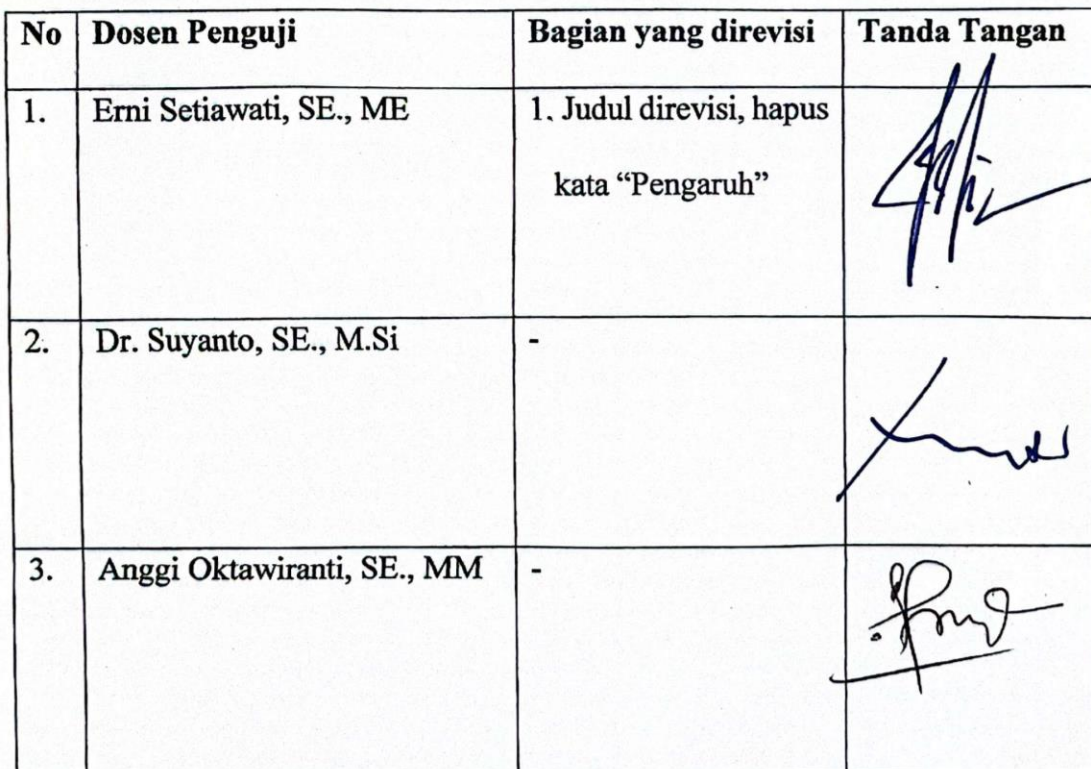 No Dosen Penguji Bagian yang direvisi Tanda Tangan
1. Erni Setiawati, SE., ME 1. Judul direvisi, hapus
kata “Pengaruh”
2. Dr. Suyanto, SE., M.Si -
3. Anggi Oktawiranti, SE., MM -